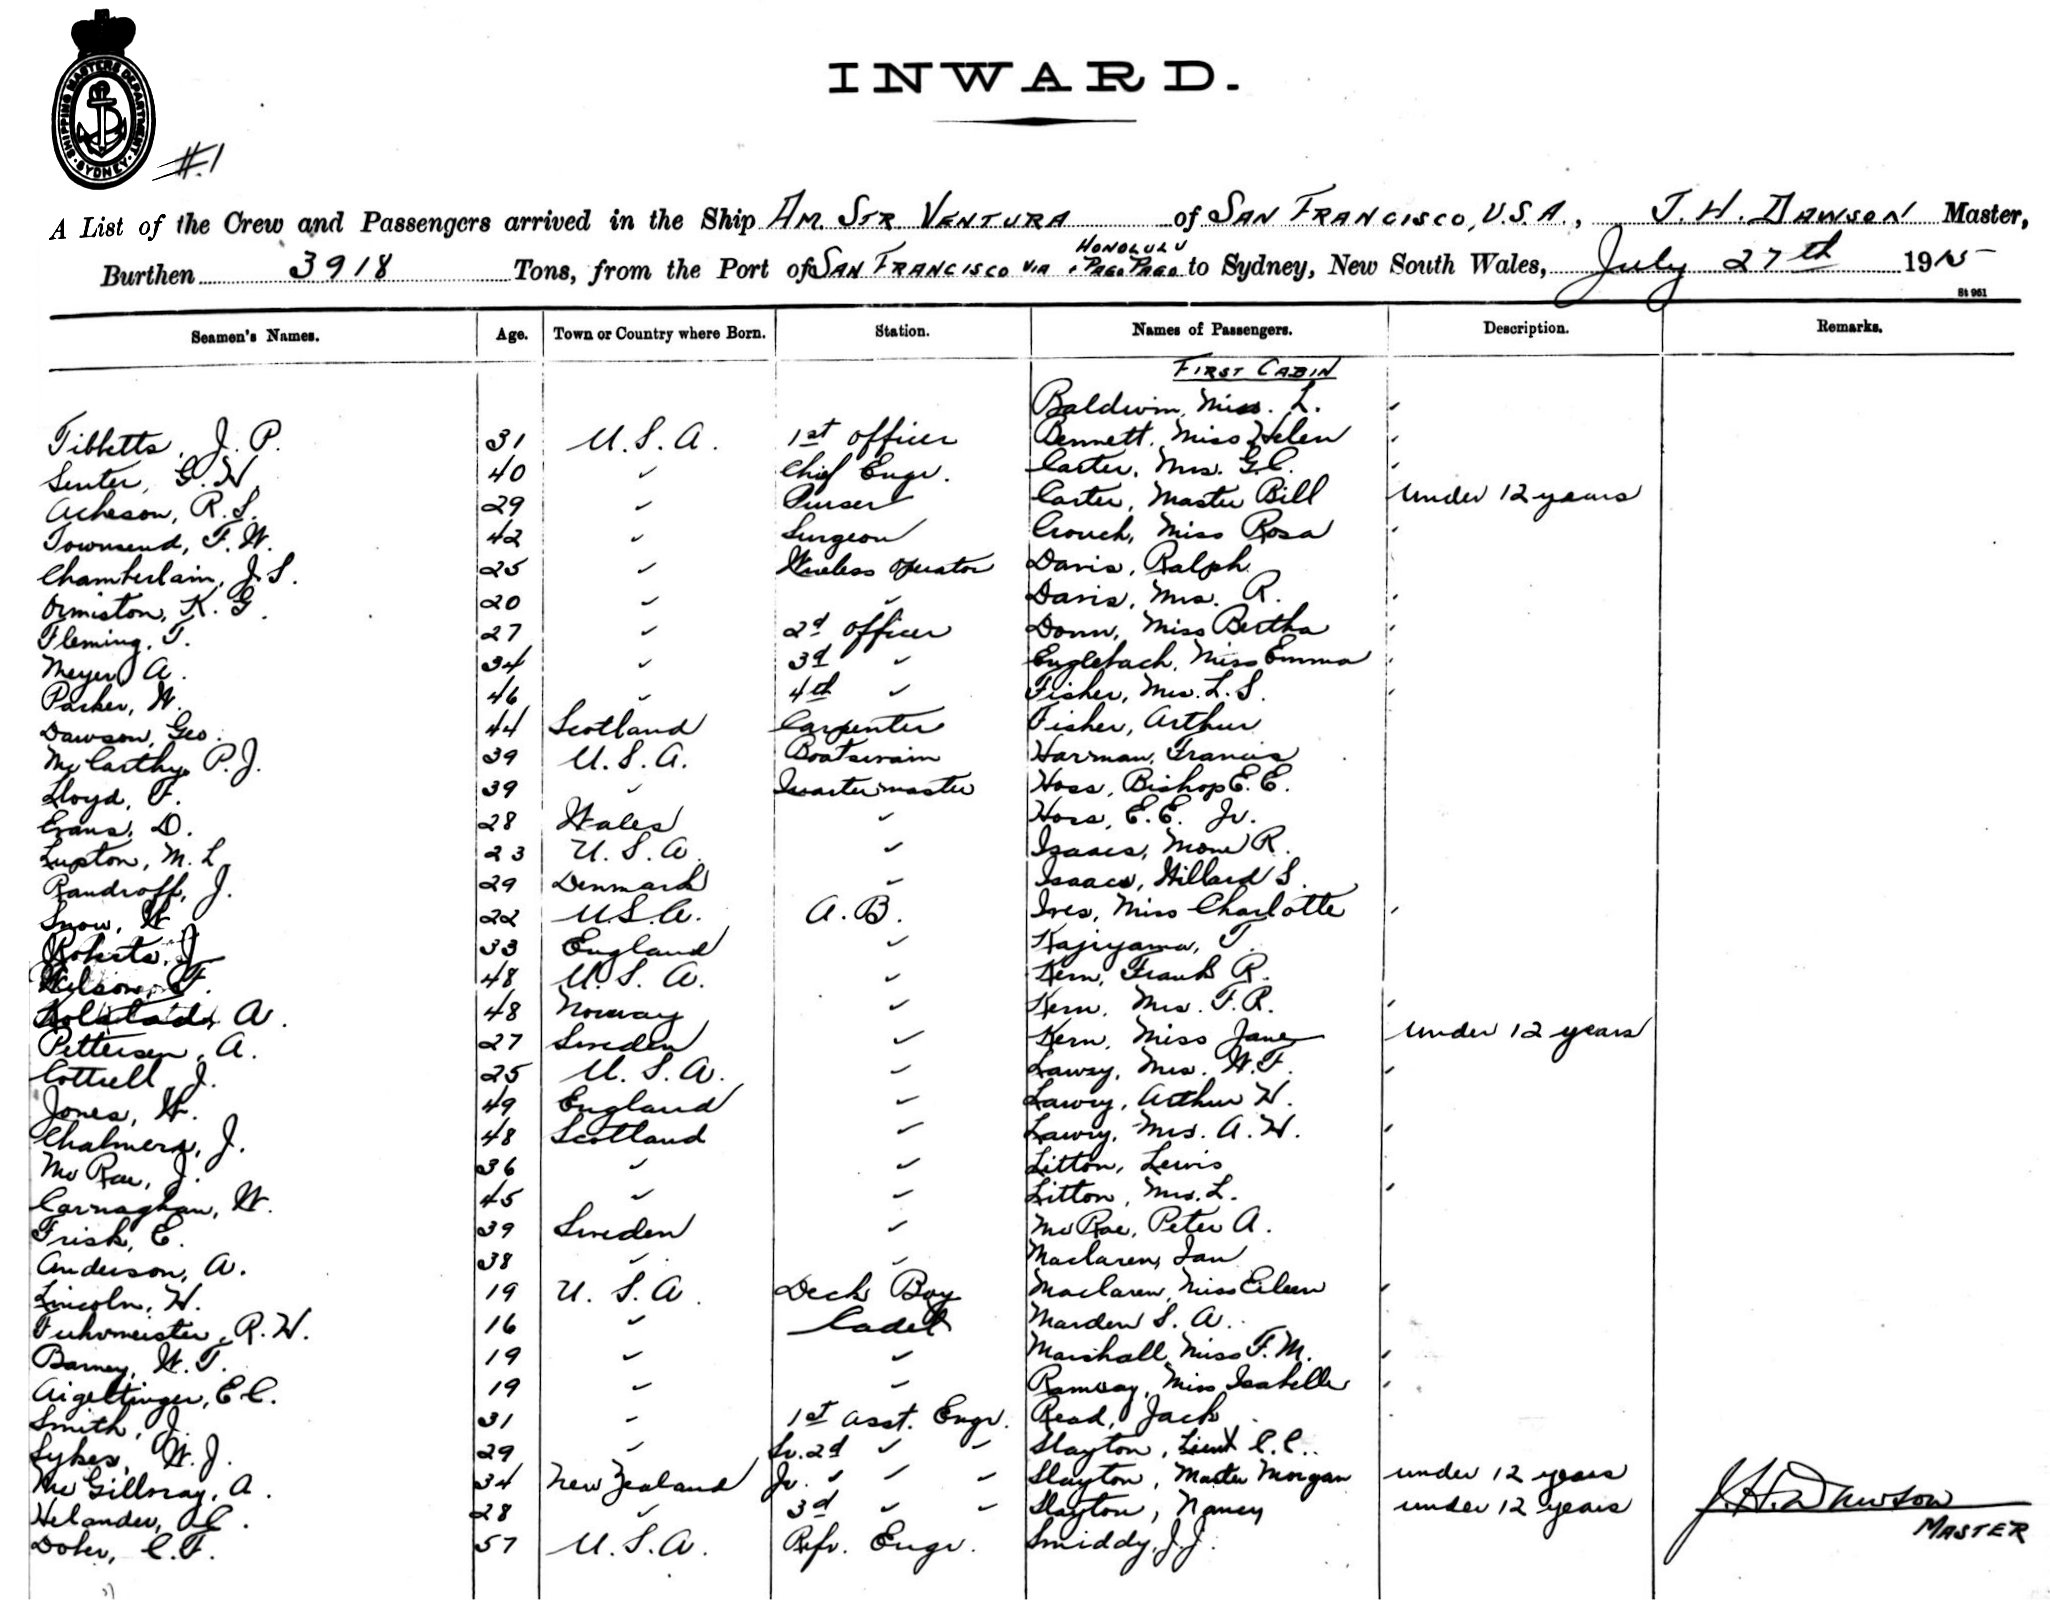 SHIPPING MASTERS DEPARTMENT
SYDNEY
#1
INWARD.
A List of the Crew and Passengers arrived in the Ship Am. Str Ventura of San Francisco, U.S.A., J. H. Dawson Master,
Honolulu
Burthen 3918 Tons, from the Port of San Francisco via & Pago Pago to Sydney, New South Wales, July 27th 1915
St 961
Seamen's Names. Age. Town or Country where Born. Station. Names of Passengers. Description. Remarks.
First Cabin
Baldwin, Miss. L. 〃
Tibbetts, J. P. 31 U.S.A. 1st Officer Bennett, Miss Helen 〃
Senter, G. H. 40 〃 Chief Engr. Carter, Mrs. G.C. 〃
Acheson, R. S. 29 〃 Purser Carter, Master Bill under 12 years
Townsend, F. W. 42 〃 Surgeon Crouch, Miss Rosa 〃
Chamberlain, J. S. 25 〃 Wireless operator Davis, Ralph
Ormiston, K. G. 20 〃 〃 Davis, Mrs. R. 〃
Fleming, T. 27 〃 2d Officer Donn, Miss Bertha 〃
Meyer, A. 34 〃 3d 〃 Englebach, Miss Emma 〃
Parker, W. 46 〃 4th 〃 Fisher, Mrs. L. S. 〃
Dawson, Geo. 44 Scotland Carpenter Fisher, Arthur
McCarthy, P. J. 39 U.S.A. Boatswain Harman, Francis
Lloyd, F. 39 〃 Quartermaster Hoss, Bishop E. E.
Evans, D. 28 Wales 〃 Hoss, E. E. Jr.
Lupton, M. L. 23 U.S.A. 〃 Isaacs, R.
Randroff, J. 29 Denmark 〃 Isaacs, Willard S.
Snow, W. 22 U.S.A. A.B. Ives, Miss Charlotte 〃
Roberts, J. 33 England 〃 Kajiyama, T.
Wilson, F. 48 U.S.A. 〃 Kern, Frank R.
Kolstad, A. 48 Norway 〃 Kern, Mrs. F. R. 〃
Pettersen, A. 27 Sweden 〃 Kern, Miss Jane under 12 years
Cottrell, J. 25 U.S.A. 〃 Lawry, Mrs. W. F. 〃
Jones, W. 49 England 〃 Lawry, Arthur H.
Chalmers, J. 48 Scotland 〃 Lawry, Mrs. A. H. 〃
McRae, J. 36 〃 〃 Litton, Lewis
Carnaghan, W. 45 〃 〃 Litton, Mrs. L. 〃
Frisk, E. 39 Sweden 〃 McRae, Peter A.
Anderson, A. 38 〃 〃 Maclaren, Ian
Lincoln, H. 19 U.S.A. Deck Boy Maclaren, Miss Eileen 〃
Fuhrmeister, R. H. 16 〃 Cadet Marden S. A.
Barney, W. T. 19 〃 〃 Marshall, Miss F. M. 〃
Aigeltinger, E. C. 19 〃 〃 Ramsay, Miss Isabelle 〃
Smith, J. 31 〃 1st Asst. Engr. Read, Jack
Sykes, W. J. 29 〃 Sr. 2d 〃 〃 Slayton, Lieut C. C.
McGillvray, A. 34 New Zealand Jr. 〃 〃 〃 Slayton, Master Morgan under 12 years
Helander, C. 28 〃 3d 〃 〃 Slayton, Nancy under 12 years
Doher, C. F. 57 U.S.A. Rfr. Engr. Smiddy, J. J.
J. H. Dawson
Master